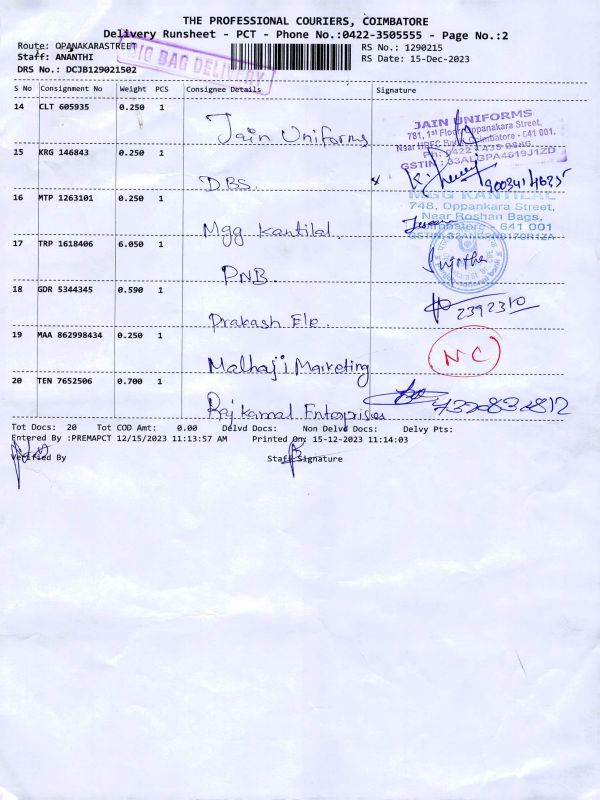 THE PROFESSIONAL COURIERS, COIMBATORE
Delivery Runsheet - PCT - Phone No.:0422-3505555 - Page No.:2
Route: OPANAKARASTREET
RS No.: 1290215
Staff: ANANTHI
BIG BAG DELIVERY
RS Date: 15-Dec-2023
DRS No.: DCJB129021502
S No Consignment No Weight PCS Consignee Details Signature
14 CLT 605935 0.250 1 Jain Uniforms
JAIN UNIFORMS
781, 1st Floor, Oppanakara Street,
Near HDFC Coimbatore - 641 001.
15 KRG 146843 0.250 1 DBS
16 MTP 1263101 0.250 1 Mgg Kantilal
MGG KANTILAL
748, Oppankara Street,
Near Roshan Bags,
Coimbatore - 641 001
17 TRP 1618406 6.050 1 PNB Sujatha
18 GDR 5344345 0.590 1 Prakash Ele 2392310
19 MAA 862998434 0.250 1 Malhaji Marketing NC
20 TEN 7652506 0.700 1 Rajkamal Enterprises
Tot Docs: 20 Tot COD Amt: 0.00 Delvd Docs: Non Delvd Docs: Delvy Pts:
Entered By :PREMAPCT 12/15/2023 11:13:57 AM Printed On: 15-12-2023 11:14:03
Verified By Staff Signature